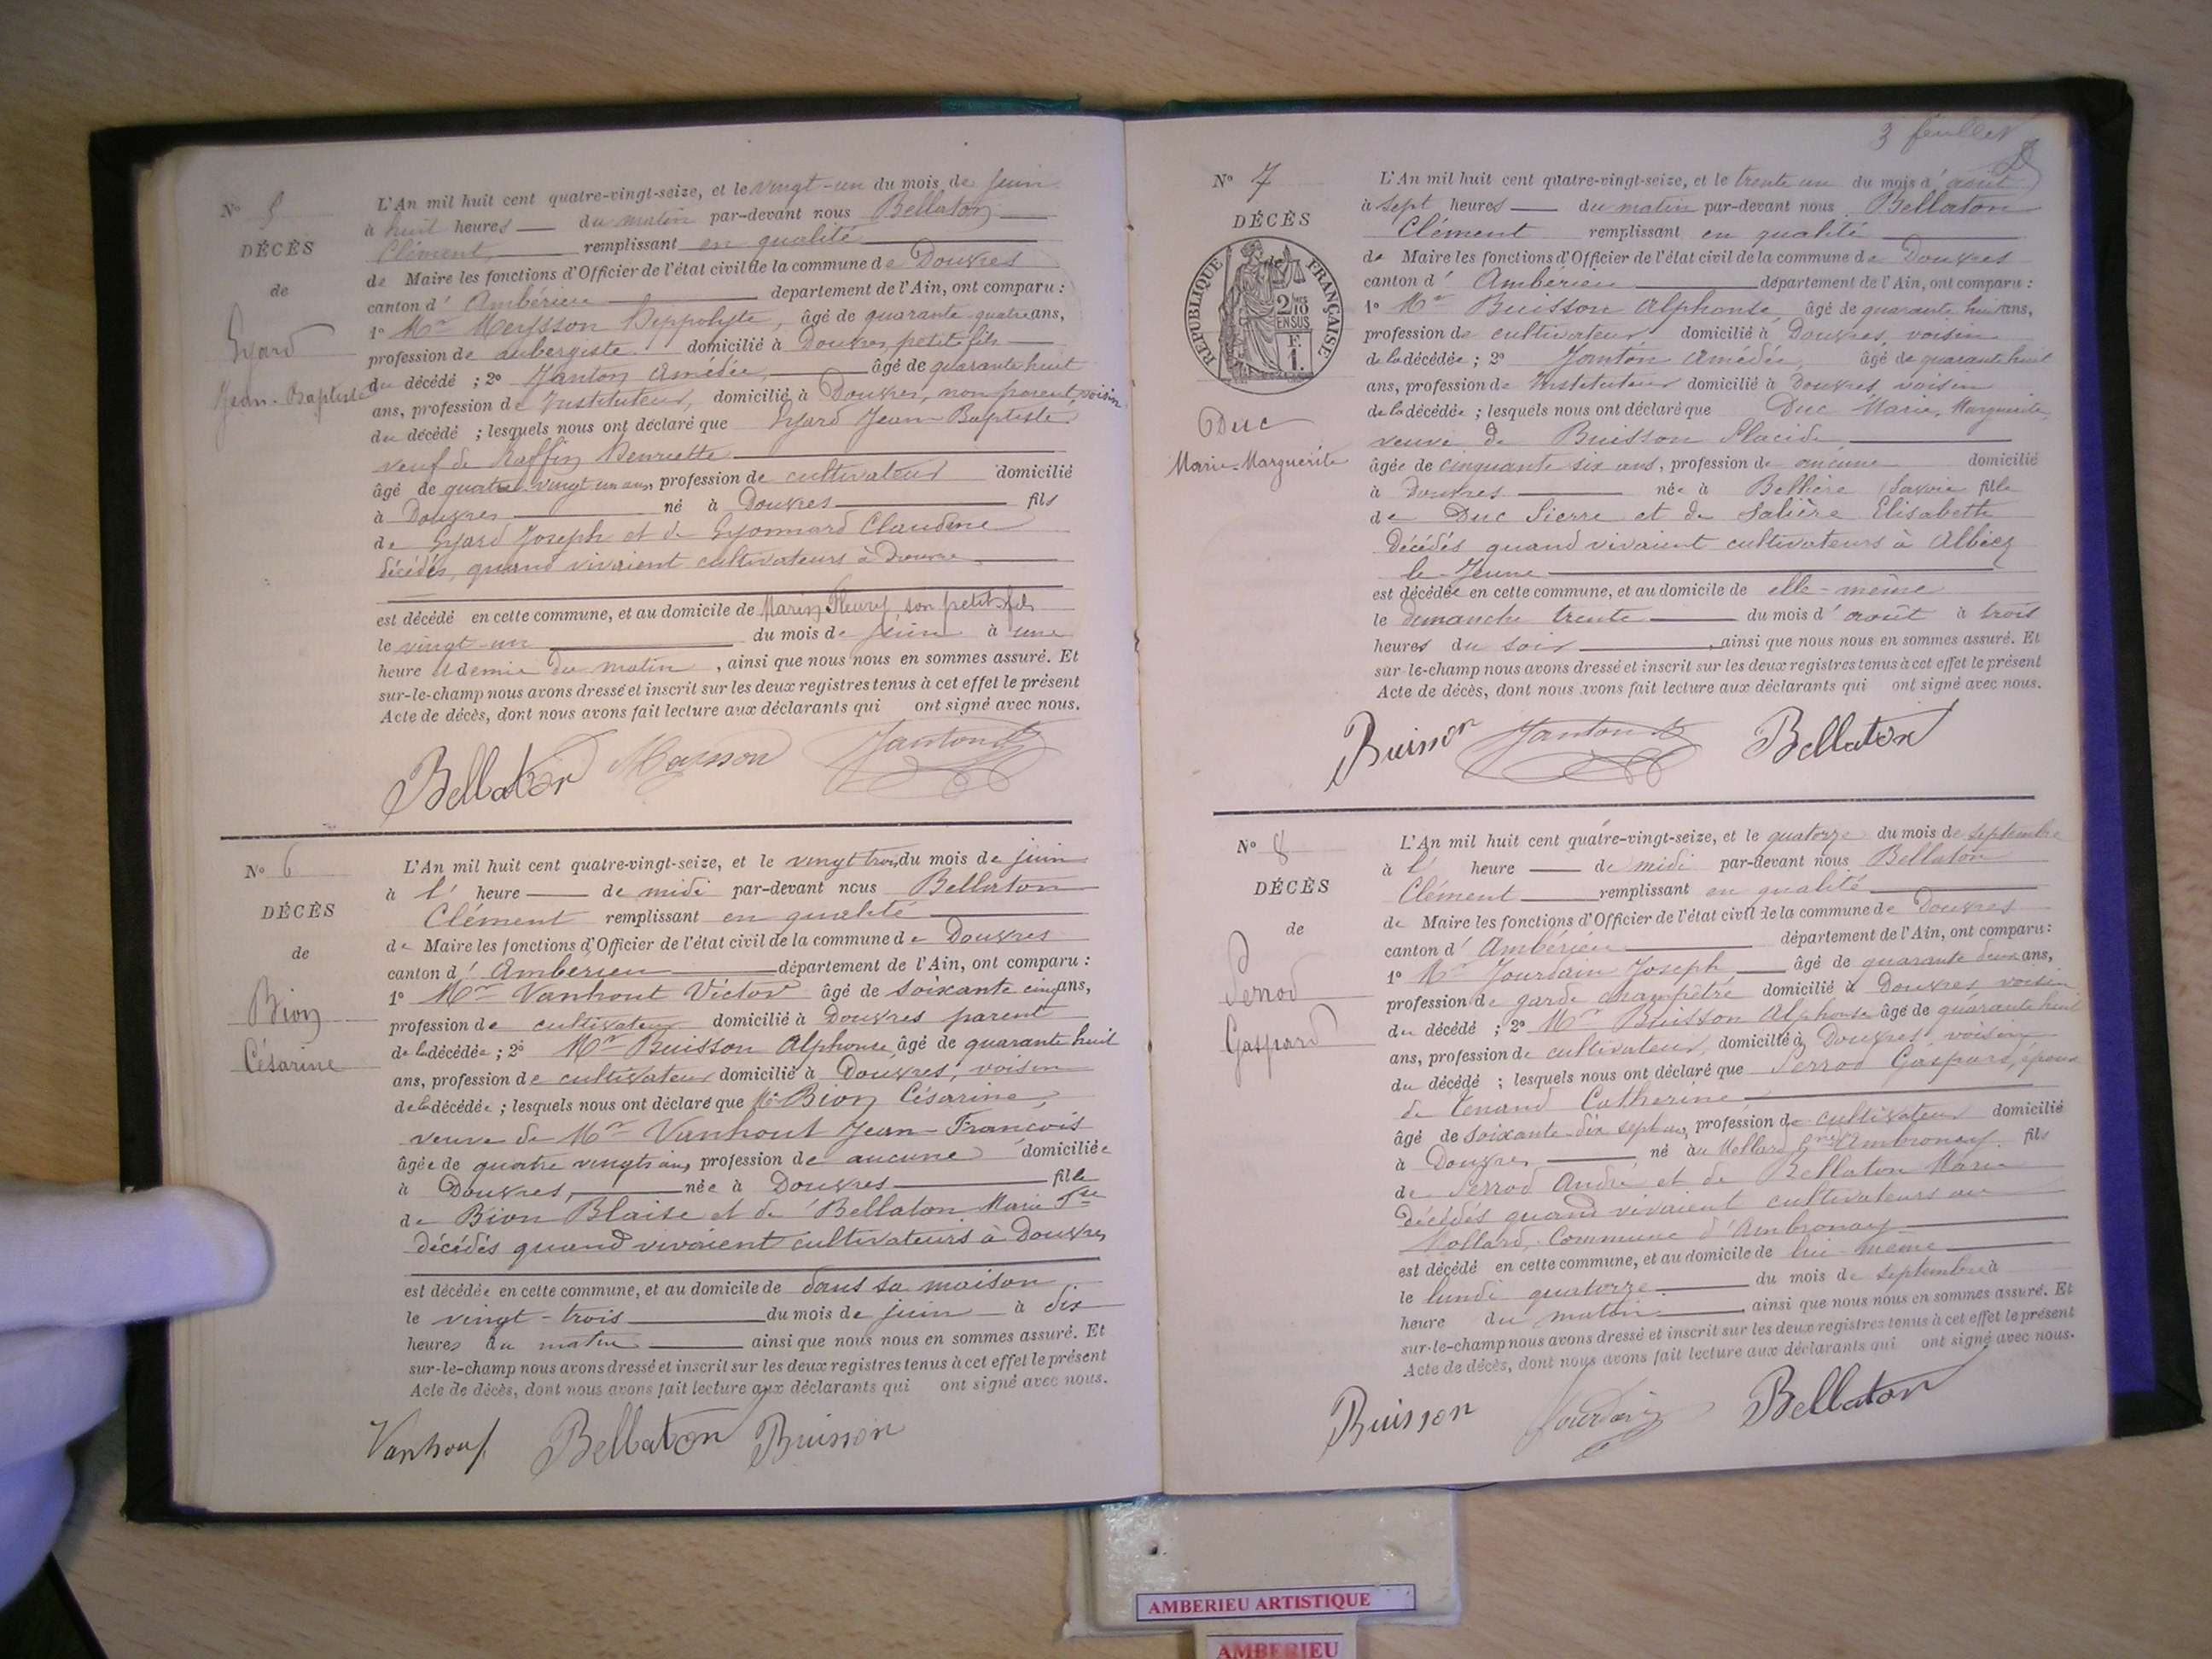 N° 5
DÉCÈS
de
Gyard
Jean-Baptiste
L'An mil huit cent quatre-vingt-seize, et le vingt-un du mois de juin
à huit heures du matin par-devant nous Bellaton
Clément, remplissant en qualité
de Maire les fonctions d'Officier de l'état civil de la commune de Douvres
canton d'Ambérieu département de l'Ain, ont comparu :
1° Mr Meysson Hippolyte, âgé de quarante-quatre ans,
profession de aubergiste domicilié à Douvres petit-fils
du décédé ; 2° Janton Amédée, âgé de quarante huit
ans, profession de Instituteur, domicilié à Douvres, non parent, voisin
du décédé ; lesquels nous ont déclaré que Gyard Jean-Baptiste
veuf de Raffin Henriette
âgé de quatre-vingt un ans, profession de cultivateur domicilié
à Douvres né à Douvres fils
de Gyard Joseph et de Gyonnard Claudine
décédés, quand vivaient cultivateurs à Douvres
est décédé en cette commune, et au domicile de Marin Fleury, son petit-fils
le vingt-un du mois de juin à une
heure et demie du matin, ainsi que nous nous en sommes assuré. Et
sur-le-champ nous avons dressé et inscrit sur les deux registres tenus à cet effet le présent
Acte de décès, dont nous avons fait lecture aux déclarants qui ont signé avec nous.
Bellaton Meysson Janton
N° 6
DÉCÈS
de
Bion
Césarine
L'An mil huit cent quatre-vingt-seize, et le vingt trois du mois de juin
à l' heure de midi par-devant nous Bellaton
Clément remplissant en qualité
de Maire les fonctions d'Officier de l'état civil de la commune de Douvres
canton d'Ambérieu département de l'Ain, ont comparu :
1° Mr Vanhout Victor âgé de soixante cinq ans,
profession de cultivateur domicilié à Douvres parent
de la décédée ; 2° Mr Buisson Alphonse, âgé de quarante huit
ans, profession de cultivateur domicilié à Douvres, voisin
de la décédée ; lesquels nous ont déclaré que Bion Césarine,
veuve de Mr Vanhout Jean-François
âgée de quatre vingts ans, profession de aucune domiciliée
à Douvres, née à Douvres fille
de Bion Blaise et de Bellaton Marie Tse
décédés quand vivaient cultivateurs à Douvres
est décédée en cette commune, et au domicile de dans sa maison
le vingt-trois du mois de juin à dix
heures du matin ainsi que nous nous en sommes assuré. Et
sur-le-champ nous avons dressé et inscrit sur les deux registres tenus à cet effet le présent
Acte de décès, dont nous avons fait lecture aux déclarants qui ont signé avec nous.
Vanhout Bellaton Buisson
3 feuillet
N° 7
DÉCÈS
de
RÉPUBLIQUE FRANÇAISE
2/10
EN SUS
F.
1.
Duc
Marie-Marguerite
L'An mil huit cent quatre-vingt-seize, et le trente un du mois d'août
à sept heures du matin par-devant nous Bellaton
Clément remplissant en qualité
de Maire les fonctions d'Officier de l'état civil de la commune de Douvres
canton d'Ambérieu département de l'Ain, ont comparu :
1° Mr Buisson Alphonse âgé de quarante huit ans,
profession de cultivateur domicilié à Douvres, voisin
de la décédée ; 2° Janton Amédée, âgé de quarante huit
ans, profession de Instituteur domicilié à Douvres, voisin
de la décédée ; lesquels nous ont déclaré que Duc Marie, Marguerite,
veuve de Buisson Placide
âgée de cinquante six ans, profession de aucune domicilié
à Douvres née à Bellière (Savoie fille
de Duc Pierre et de Salière Elisabeth
décédés quand vivaient cultivateurs à Albiez
le-Jeune
est décédée en cette commune, et au domicile de elle-même
le dimanche trente du mois d'août à trois
heures du soir, ainsi que nous nous en sommes assuré. Et
sur-le-champ nous avons dressé et inscrit sur les deux registres tenus à cet effet le présent
Acte de décès, dont nous avons fait lecture aux déclarants qui ont signé avec nous.
Buisson Janton Bellaton
N° 8
DÉCÈS
de
Perrod
Gaspard
L'An mil huit cent quatre-vingt-seize, et le quatorze du mois de septembre
à l' heure de midi par-devant nous Bellaton
Clément remplissant en qualité
de Maire les fonctions d'Officier de l'état civil de la commune de Douvres
canton d'Ambérieu département de l'Ain, ont comparu :
1° Mr Jourdain Joseph, âgé de quarante deux ans,
profession de garde champêtre domicilié à Douvres, voisin
du décédé ; 2° Mr Buisson Alphonse âgé de quarante huit
ans, profession de cultivateur, domicilié à Douvres, voisin
du décédé ; lesquels nous ont déclaré que Perrod Gaspard, époux
de Tenand Catherine
âgé de soixante-dix sept ans, profession de cultivateur domicilié
à Douvres né au Mollard, Ambronay fils
de Perrod André et de Bellaton Marie
décédés quand vivaient cultivateurs au
Mollard, Commune d'Ambronay
est décédé en cette commune, et au domicile de lui-même
le lundi quatorze du mois de septembre à
heure du matin ainsi que nous nous en sommes assuré. Et
sur-le-champ nous avons dressé et inscrit sur les deux registres tenus à cet effet le présent
Acte de décès, dont nous avons fait lecture aux déclarants qui ont signé avec nous.
Buisson Jourdain Bellaton
AMBERIEU ARTISTIQUE
AMBERIEU